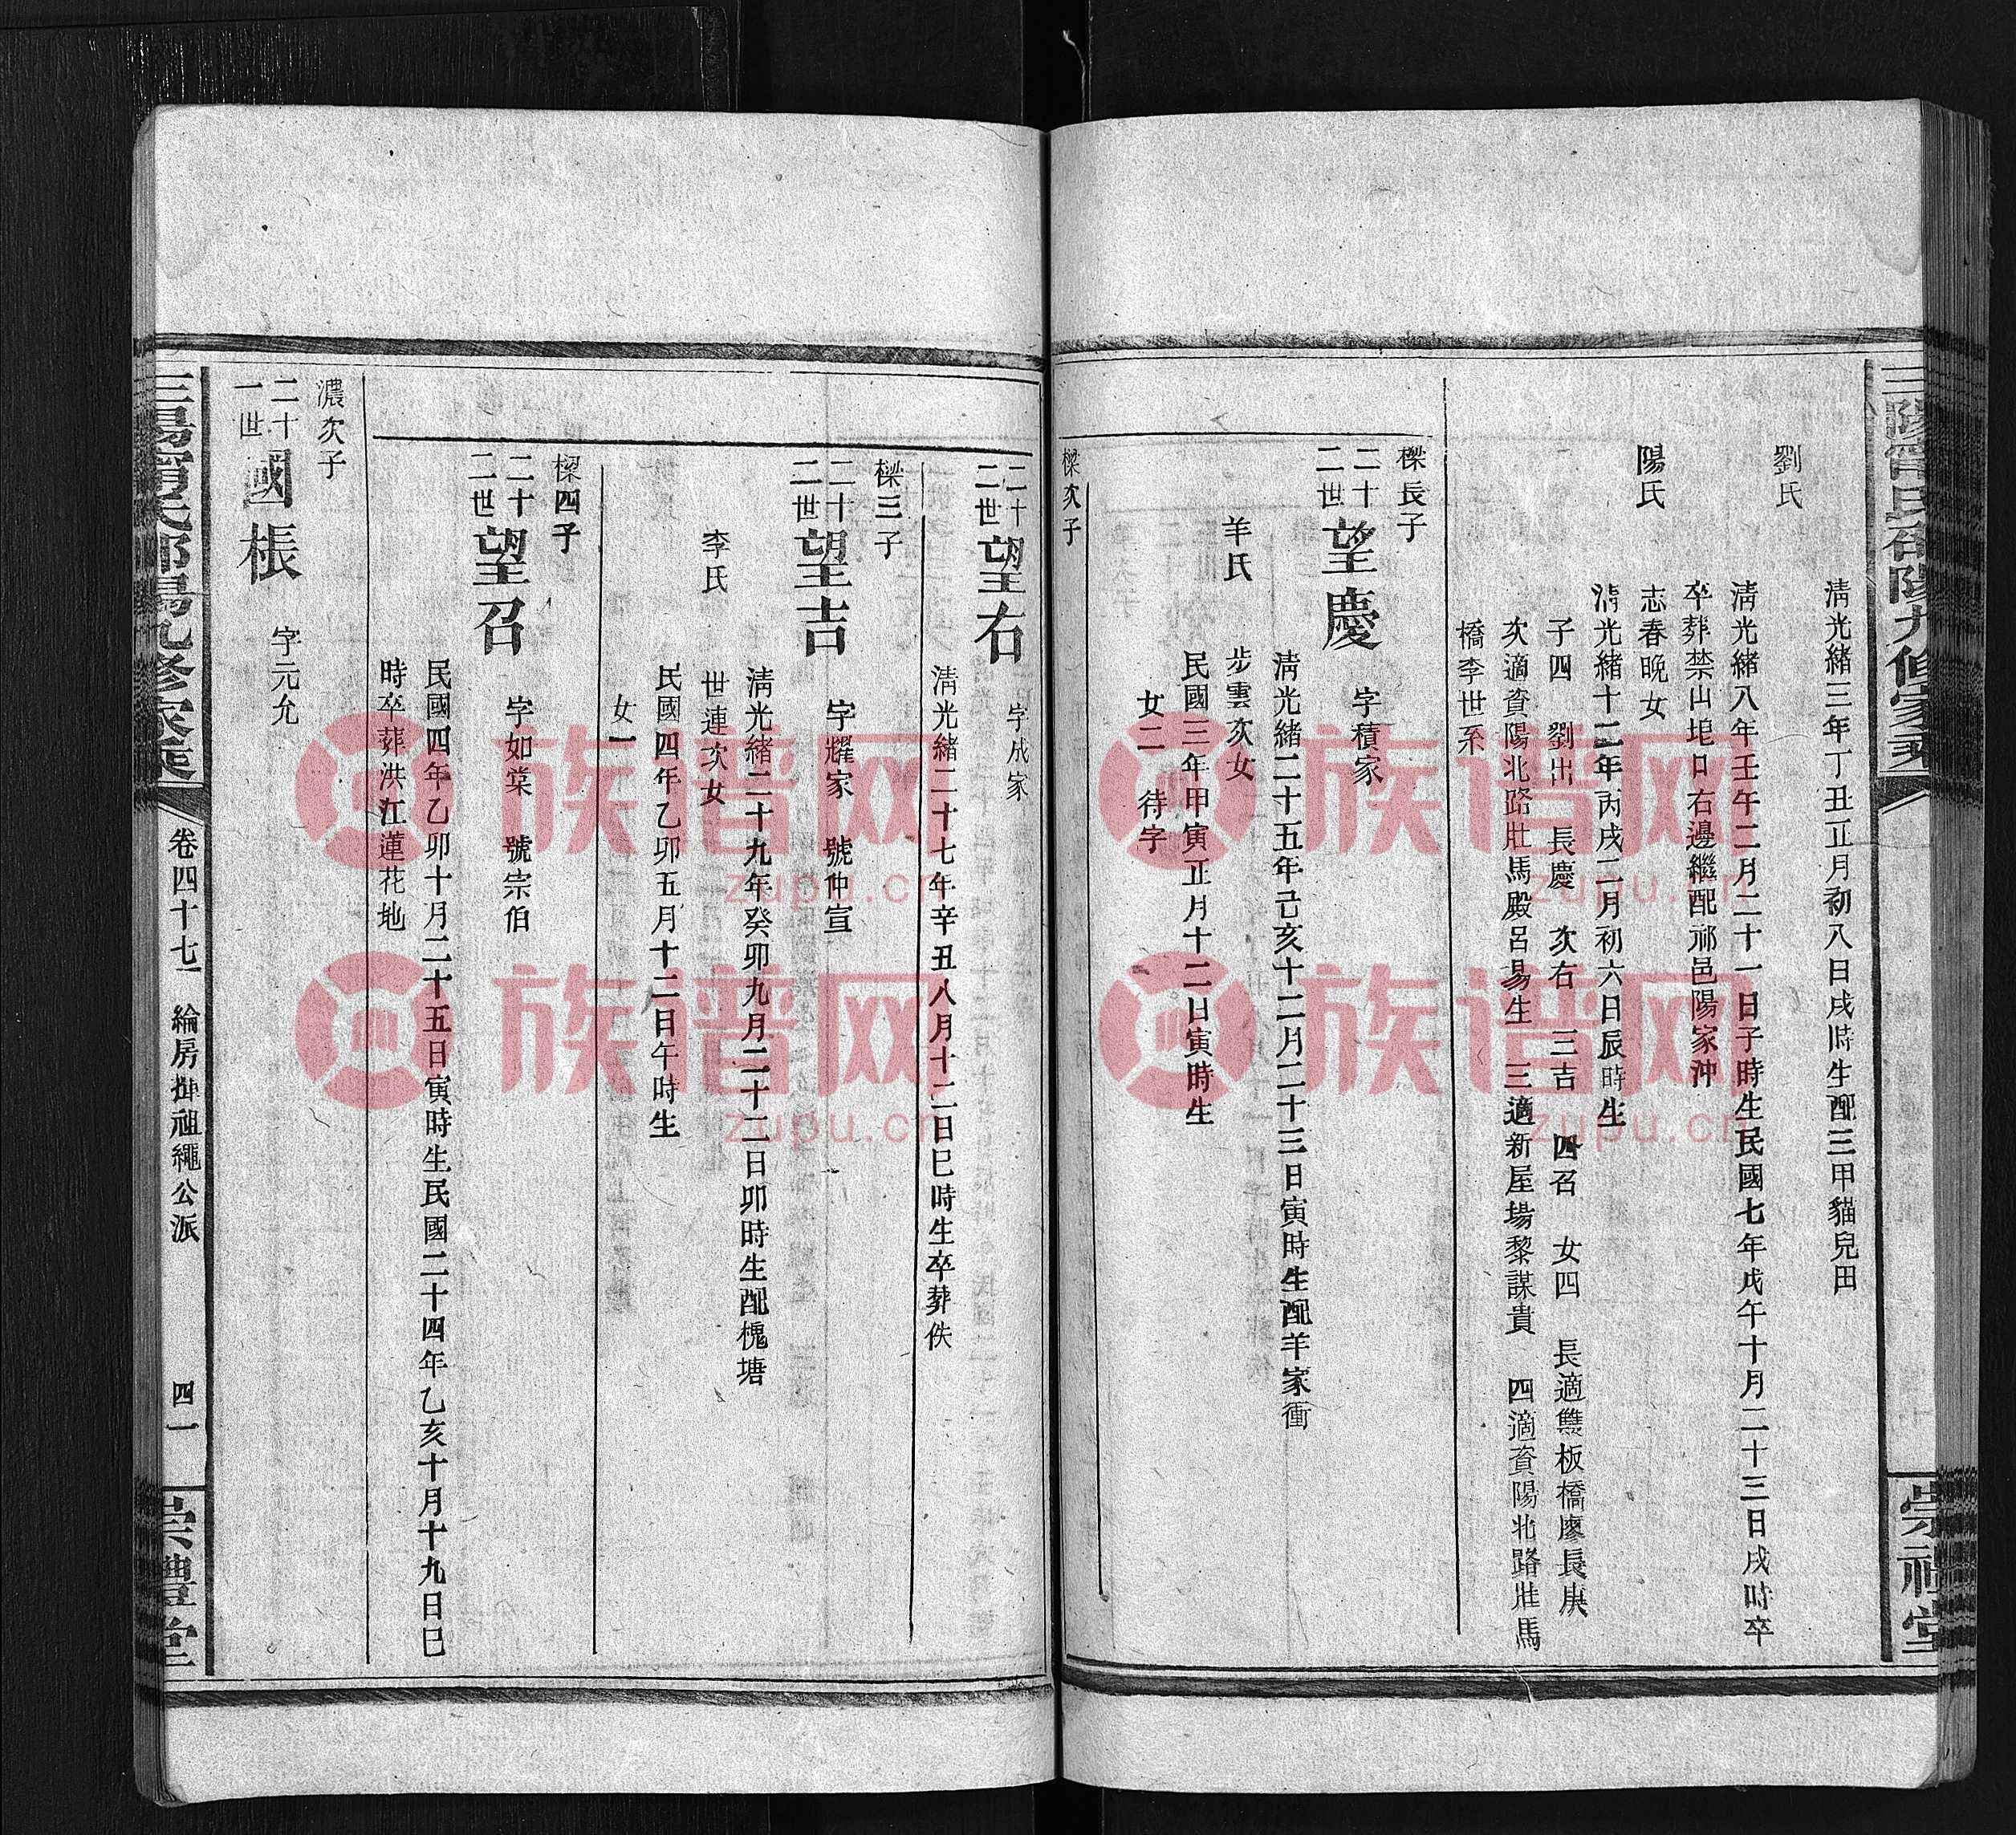 三陽甯氏邵陽九修家乘
崇禮堂
清光緒三年丁丑正月初八日戌時生配三甲貓兒田
劉氏
清光緒八年壬午二月二十一日子時生民國七年戊午十月二十三日戌時卒
卒葬禁山坨口右邊繼配邵邑陽家沖
陽氏
志春晚女
清光緒十二年丙戌二月初六日辰時生
子四 劉出 長慶 次右 三吉 四召 女四 長適雙板橋廖長庚
次適資陽北路壯馬殿呂易生 三適新屋場黎謀貴 四適資陽北路壯馬
橋李世系
樑長子
二十二世 望慶 字積家
清光緒二十五年己亥十二月二十三日寅時生配羊家衝
羊氏
步雲次女
民國三年甲寅正月十二日寅時生
女二 待字
樑次子
二十二世 望右 字成家
清光緒二十七年辛丑八月十二日巳時生卒葬佚
樑三子
二十二世 望吉 字耀家 號仲宣
清光緒二十九年癸卯九月二十二日卯時生配槐塘
李氏
世連次女
民國四年乙卯五月十二日午時生
女一
樑四子
二十二世 望召 字如棠 號宗伯
民國四年乙卯十月二十五日寅時生民國二十四年乙亥十月十九日巳
時卒葬洪江蓮花地
濃次子
二十一世 國棖 字元允
三陽甯氏邵陽九修家乘
卷四十七 綸房 祖繩公派
四一
崇禮堂
族谱网
zupu.cn
族谱网
zupu.cn
族谱网
zupu.cn
族谱网
zupu.cn